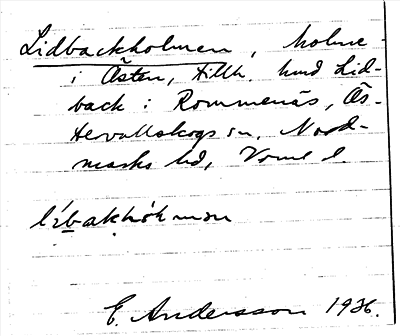 Lidbackholmen, holme
i Östen, tillh. hmd Lid-
back i Rommenäs, Ös-
tervallskogs sn, Nord-
marks hd, Vrml l.
E. Andersson 1936.